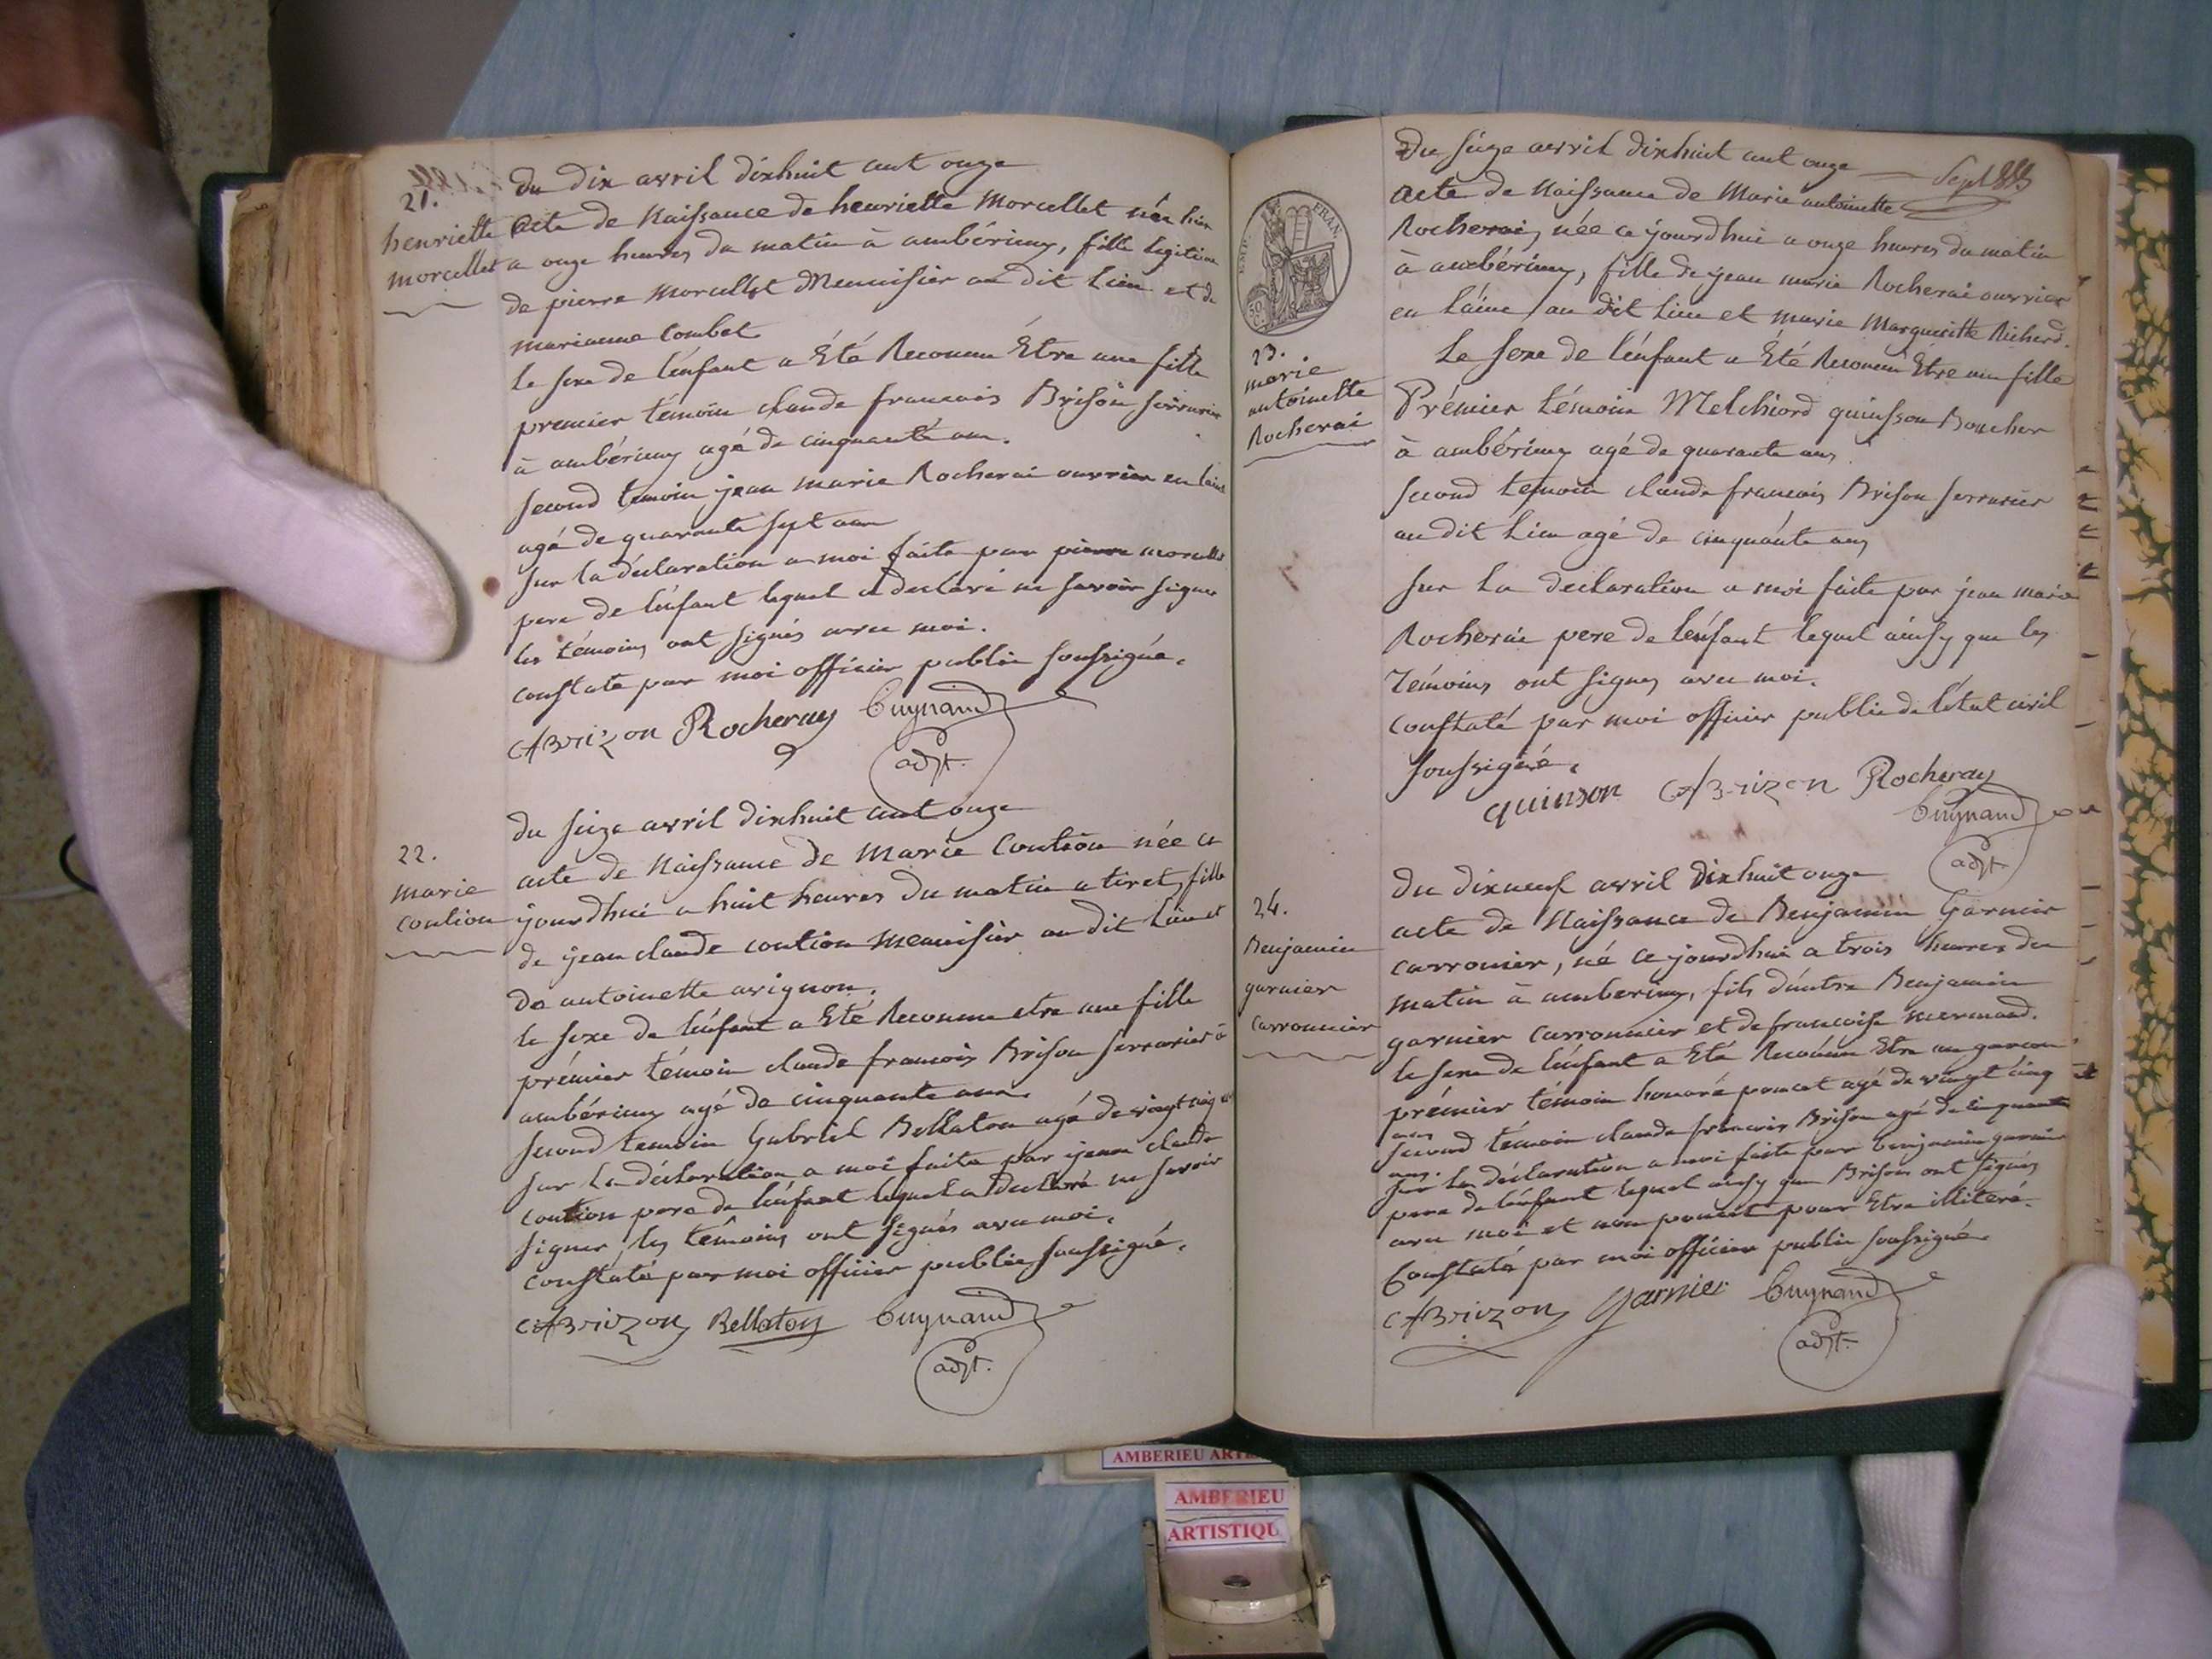 21.
henriette
morcellet
du dix avril dixhuit cent onze
acte de Naissance de henriette Morcellet née hier
a onze heures du matin à ambérieux, fille legitime
de pierre Morcellet Menuisier au dit Lieu et de
marianne Combet
le sexe de l'énfant a Été Reconnu Être une fille
premier témoin claude francois Brison serrurier
à ambérieux agé de cinquante ans.
second temoin jean marie Rocherai ouvrier en laine
agé de quarante sept ans
sur la déclaration a moi faite par pierre morcellet
pere de l'énfant lequel a declaré ne savoir signer
les témoins ont signés avec moi.
constaté par moi officier public soussigné.
CfBrizon Rocheray Guynand
adjt.
22.
marie
coution
du seize avril dixhuit cent onze
acte de Naissance de Marie Coution née ce
jourdhui a huit heures du matin a tiret, fille
de jean claude coution Menuisier au dit Lieu et
de antoinette avignon.
le sexe de l'énfant a Été Reconnu etre une fille
prémier témoin claude francois Brison serrurier à
ambérieux agé de cinquante ans.
second temoin Gabriel Bellaton agé de vingt
sur la déclaration a moi faite par jean claude
coution pere de l'énfant lequel a declaré ne savoir
signer, les témoins ont signés avec moi.
constaté par moi officier public soussigné.
CfBrizon Bellaton Guynand
adjt.
Du seize avril dixhuit cent onze
EMP. FRAN.
50 C.
23.
marie
antoinette
Rocherai
acte de Naissance de Marie antoinette
Rocherai, née ce jourdhui a onze heures du matin
à ambérieux, fille de jean marie Rocherai ouvrier
en laine au dit Lieu et marie Margueritte Richerd.
Le sexe de l'énfant a Été Reconnu Etre une fille
Prémier témoin Melchiord quinsson Boucher
à ambérieux agé de quarante ans
second témoin claude francois Brison serrurier
au dit Lieu agé de cinquante ans
sur La declaration a moi faite par jean marie
Rocherai pere de l'énfant lequel ainsy que les
Témoins ont signes avec moi.
constaté par moi officier public de l'état civil
soussigné.
quinson CfBrizon Rocheray
Guynand
adjt
24.
Benjamin
garnier
carronnier
du dixneuf avril dixhuit onze
acte de Naissance de Benjamin Garnier
carronier, né ce jourdhui a trois heures du
matin à amberieux, fils d'autre Benjamin
garnier carronnier et de francoise mermand.
le sexe de l'énfant a Été Reconnu Etre un garcon
prémier témoin honoré poncet agé de vingt cinq
ans
second témoin claude francois Brison agé de cinquante
ans.
sur la déclaration a moi faite par benjamin garnier
pere de l'énfant lequel ainsy que Brison ont signés
avec moi et non poncet pour Etre illiteré.
Constaté par moi officier public soussigné.
CfBrizon garnier Guynand
adjt.
AMBERIEU
AMBERIEU
ARTISTIQU